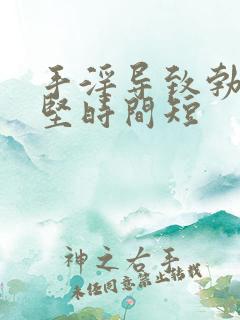 手淫导致勃
坚時間短
神之右手
未经同意禁止转载